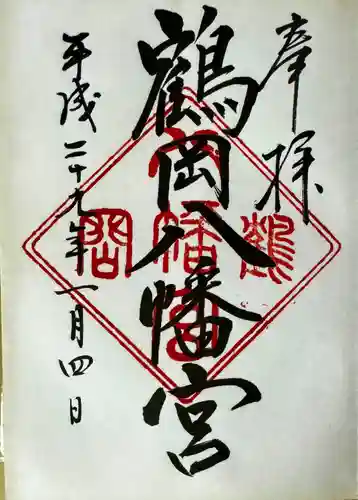 奉拝
鶴岡八幡宮
平成二十九年一月四日